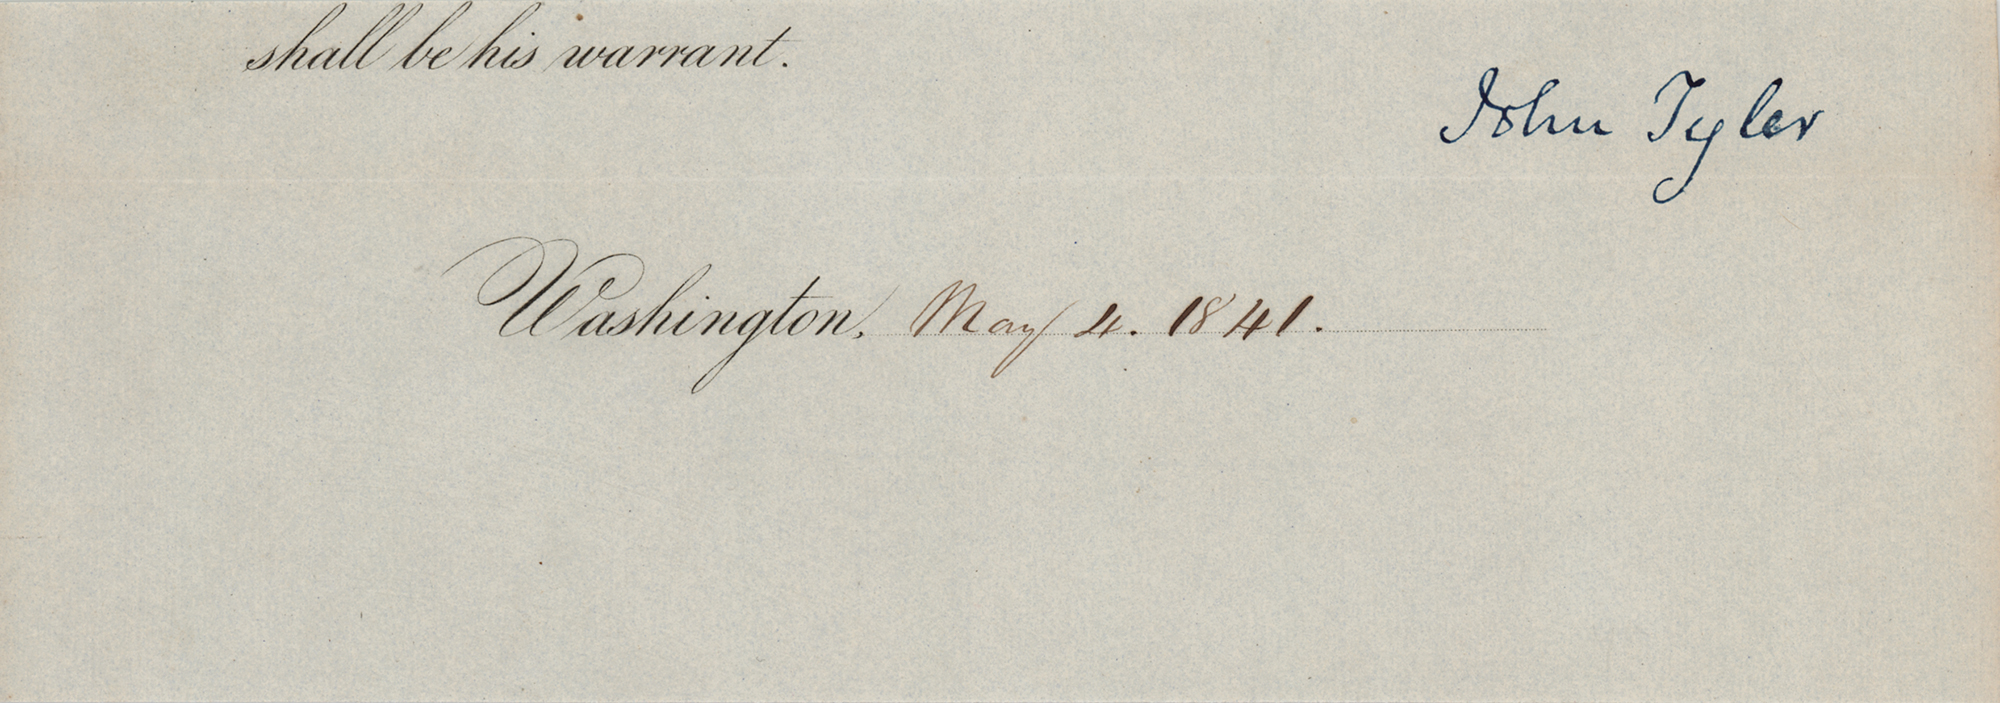 shall be his warrant.
John Tyler
Washington, May 4. 1841.